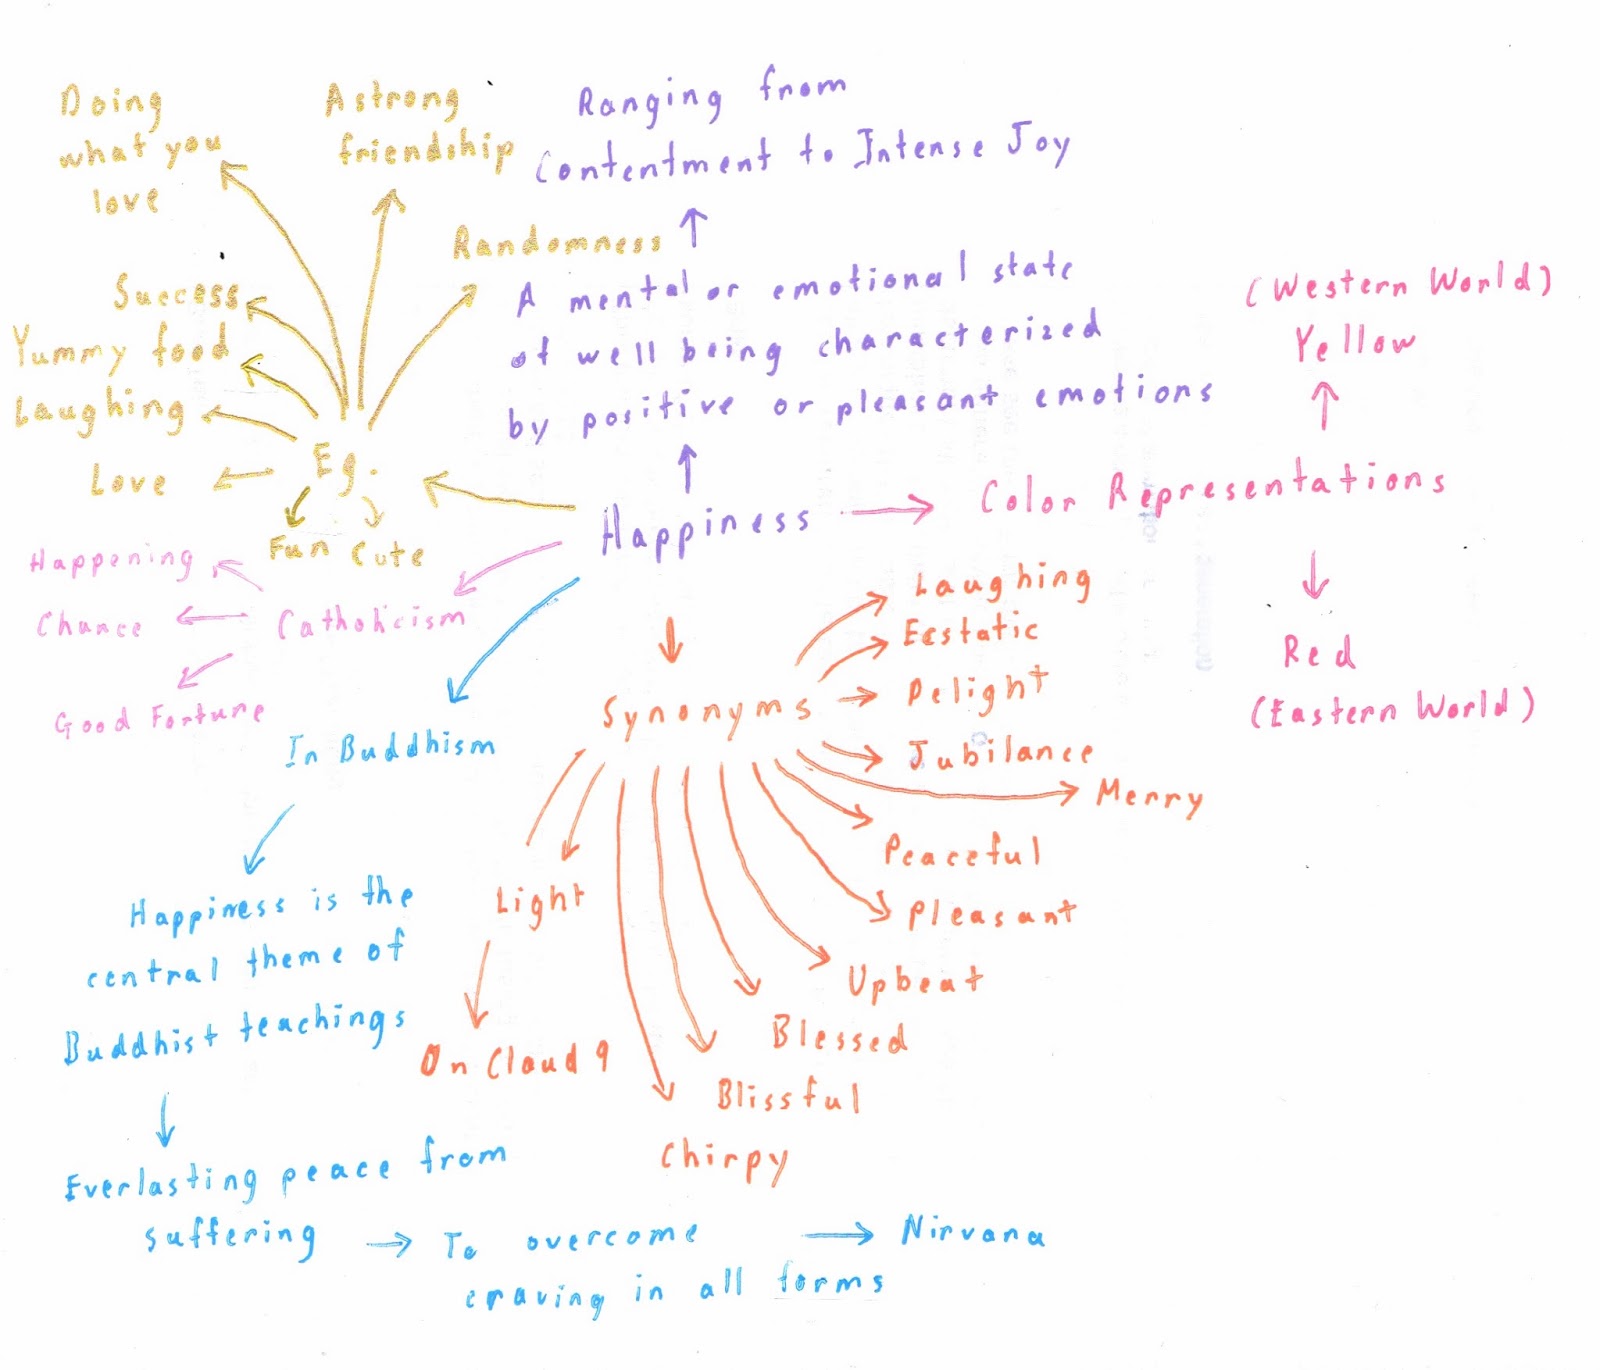 Doing
what you
love
A strong
friendship
Ranging from
Contentment to Intense Joy
Randomness
Success
Yummy food
Laughing
Love
Eg.
Fun
Cute
A mental or emotional state
of well being characterized
by positive or pleasant emotions
(Western World)
Yellow
Happiness
Color Representations
Red
(Eastern World)
Happening
Chance
Catholicism
Good Fortune
In Buddhism
Happiness is the
central theme of
Buddhist teachings
Everlasting peace from
suffering
To overcome
craving in all forms
Nirvana
Synonyms
Laughing
Ecstatic
Delight
Jubilance
Merry
Peaceful
Pleasant
Upbeat
Blessed
Blissful
Chirpy
Light
On Cloud 9